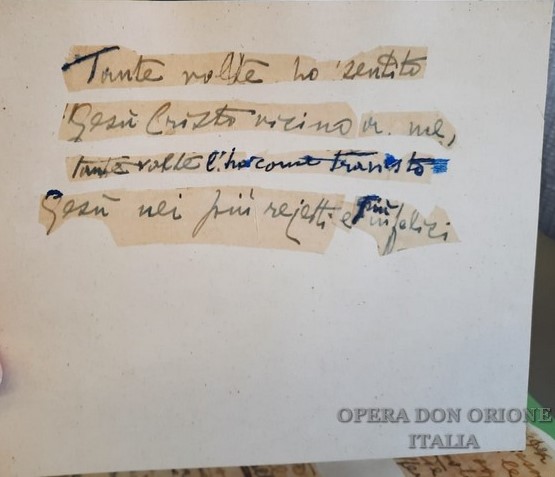 Tante volte ho sentito
Gesù Cristo vicino a me,
tante volte l'ho come travisto
Gesù nei più rejetti e più infelici
OPERA DON ORIONE
ITALIA